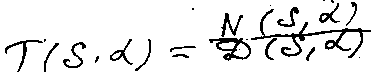 T(S,α) = N(S,α)/D(S,α)